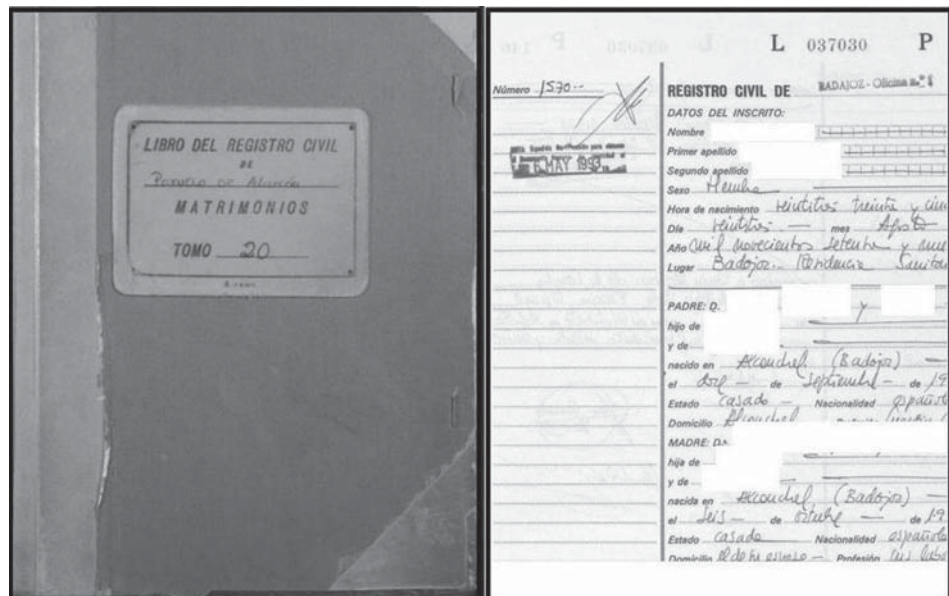 LIBRO DEL REGISTRO CIVIL
DE
Pozuelo de Alarcón
MATRIMONIOS
TOMO 20
L 037030 P
Número 1570
REGISTRO CIVIL DE BADAJOZ - Oficina n.º
DATOS DEL INSCRITO:
Nombre
Primer apellido
Segundo apellido
Sexo Hembra
Hora de nacimiento veintitrés treinta y cin
Día veintitrés — mes Agosto
Año mil novecientos setenta y
Lugar Badajoz. Residencia Sanita
PADRE: D. y
hijo de
y de
nacido en Alconchel (Badajoz) —
el doce — de Septiembre — de 19
Estado casado — Nacionalidad española
Domicilio Alconchel
MADRE: D.ª
hija de
y de
nacida en Alconchel (Badajoz) —
el seis — de octubre — de 19
Estado casada Nacionalidad española
Domicilio el de su esposo — Profesión sus labo
6 MAY 1993